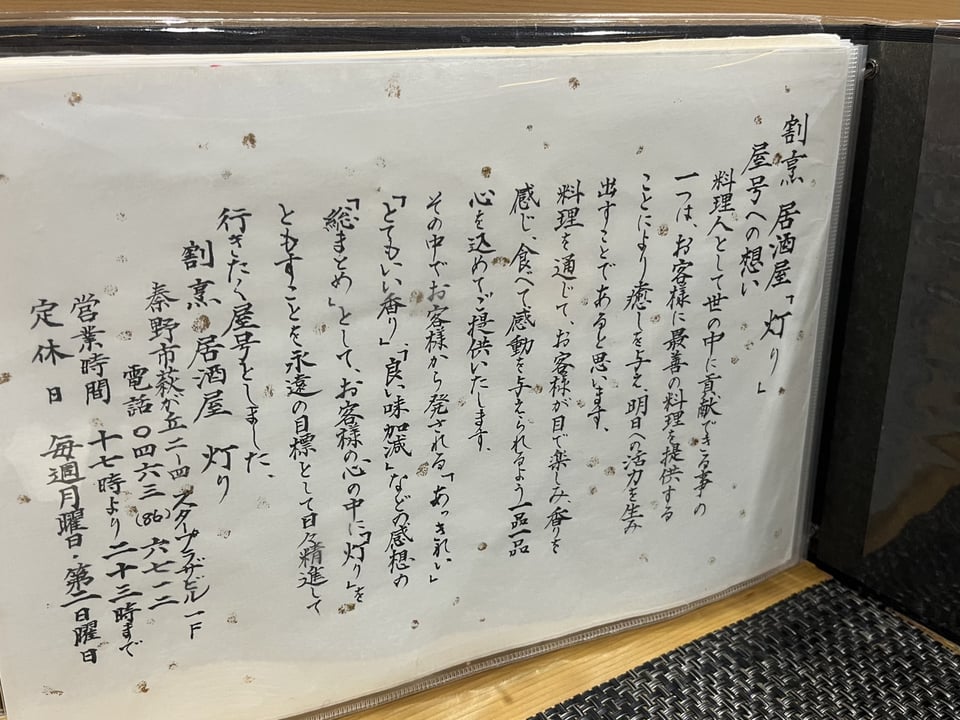 割烹 居酒屋「灯り」
屋号への想い
料理人として世の中に貢献できる事の
一つは、お客様に最善の料理を提供する
ことにより癒しを与え、明日への活力を生み
出すことであると思います。
料理を通じて、お客様が目で楽しみ、香りを
感じ、食べて感動を与えられるよう一品一品
心を込めてご提供いたします。
その中でお客様から発される「あっきれい」
「とてもいい香り」、「良い味加減」などの感想の
「総まとめ」として、お客様の心の中に「灯り」を
ともすことを永遠の目標として日々精進して
行きたく屋号をしました。
割烹 居酒屋 灯り
秦野市萩が丘二-四 スタープラザビル一F
電話 〇四六三(86)六七一二
営業時間 十七時より二十三時まで
定休日 毎週月曜日・第二日曜日